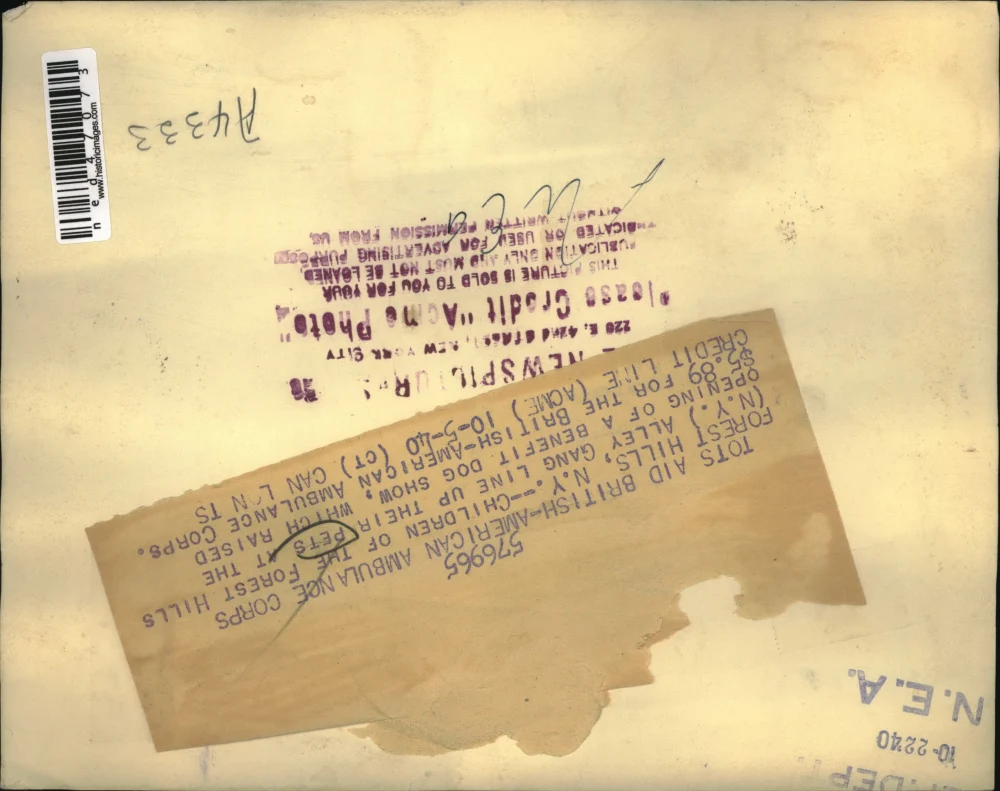 10-2240
N.E.A.
576965
TOTS AID BRITISH-AMERICAN AMBULANCE CORPS
FOREST HILLS, N.Y.--CHILDREN OF THE FOREST HILLS
(N.Y.) ALLEY GANG LINE UP THEIR PETS AT THE
OPENING OF A BENEFIT DOG SHOW, WHICH RAISED
$5.89 FOR THE BRITISH-AMERICAN AMBULANCE CORPS.
CREDIT LINE (ACME) 10-5-40 (CT) CAN
220 E. 42nd STREET, NEW YORK CITY
Please Credit "Acme Photo"
THIS PICTURE IS SOLD TO YOU FOR YOUR
PUBLICATION ONLY AND MUST NOT BE LOANED
OR USED FOR ADVERTISING PURPOSE
WITHOUT WRITTEN PERMISSION FROM US.
A4333
www.historicimages.com